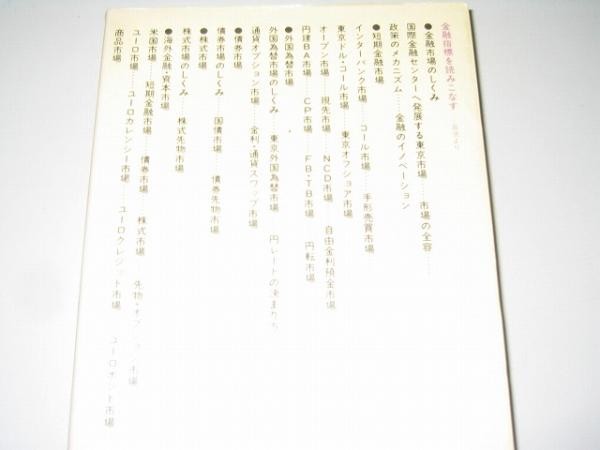 金融指標を読みこなす 目次より
●金融市場のしくみ
国際金融センターへ発展する東京市場……市場の全容……
政策のメカニズム……金融のイノベーション
●短期金融市場
インターバンク市場……コール市場……手形売買市場
東京ドル・コール市場……東京オフショア市場
オープン市場……現先市場……NCD市場……自由金利預金市場
円建BA市場……CP市場……FB・TB市場……円転市場
●外国為替市場
外国為替市場のしくみ……東京外国為替市場……円レートの決まり方
通貨オプション市場……金利・通貨スワップ市場
●債券市場
債券市場のしくみ……国債市場……債券先物市場
●株式市場
株式市場のしくみ……株式先物市場
●海外金融・資本市場
米国市場……短期金融市場……債券市場……株式市場……先物・オプション市場
ユーロ市場……ユーロカレンシー市場……ユーロクレジット市場……ユーロボンド市場
商品市場